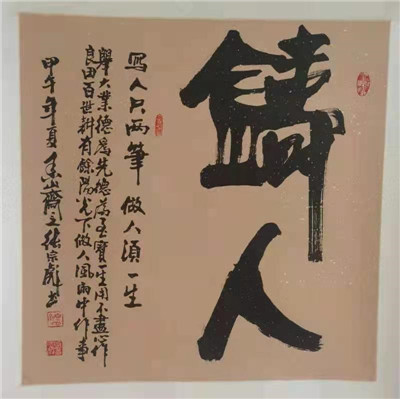 鑄人
寫人只兩筆 做人須一生
舉大業德為先德為至寶一生用不盡心作
良田百世耕有餘陽光下做人風雨中作事
甲午年夏 山齋主張宗彪書